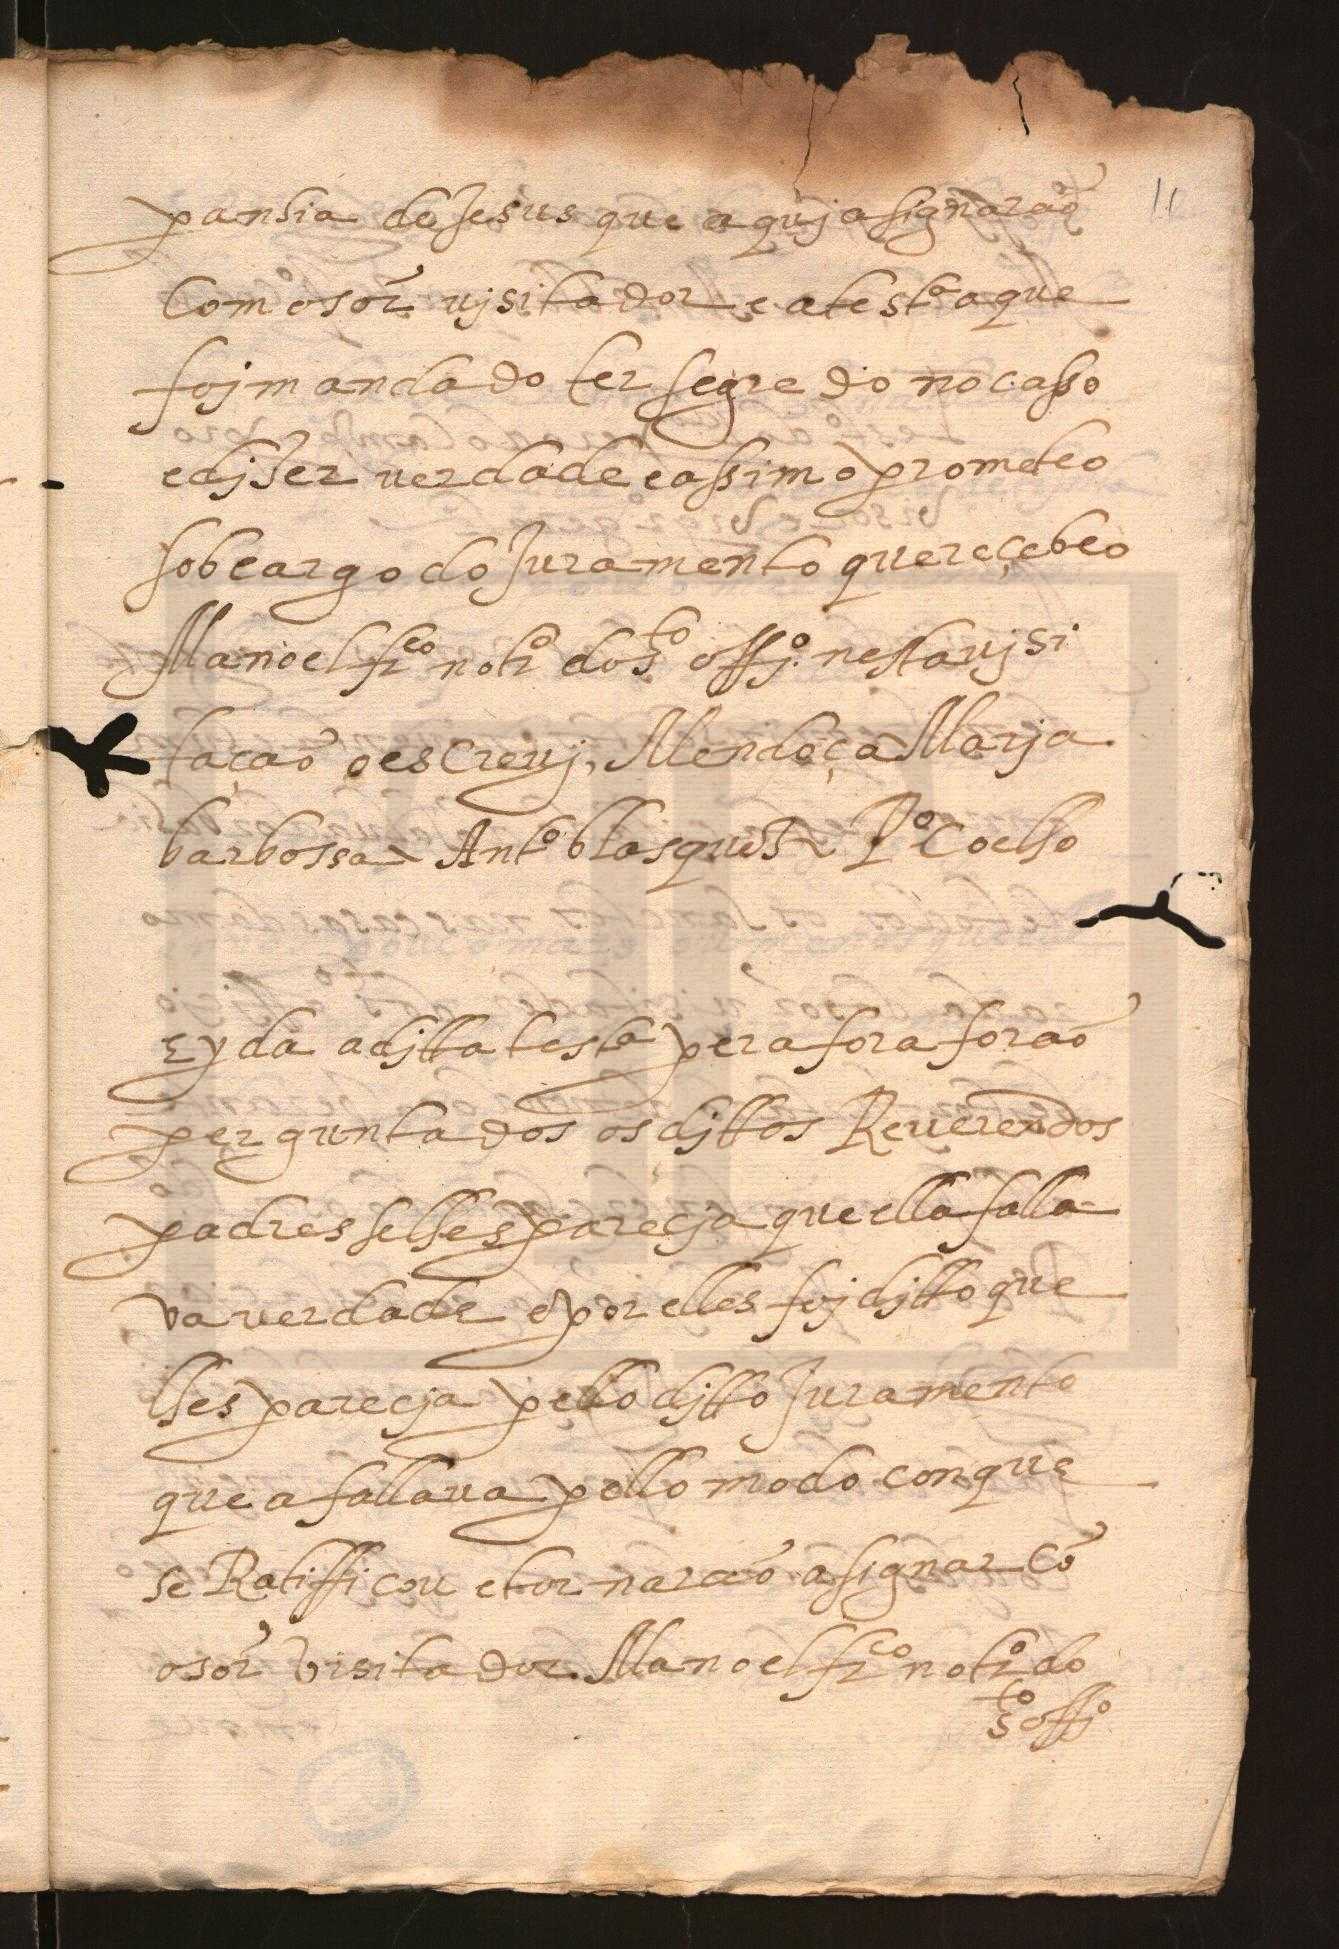 11
panhia de Jesus que aquj asignarão
Com o sõr vjsitador e a testa a que
foj mandado ter segredo no casso
e djser verdade e assim o prometeo
sob cargo do Juramento que reçebeo
Manoel frco notro do sto offo nesta vjsi
tação o escrevj, Mendoça Marja
barbossa Anto blasques Po Coelho
E yda a djtta testa pera fora forão
perguntados os djttos Reverendos
padres se lhes parecja que ella falla
va verdade e por elles foj djtto que
lhes parecja pello djtto Juramento
que a fallava pello modo con que
se Ratifficou e tornarão asignar Cõ
o sõr Visitador Manoel frco notro do
sto offo